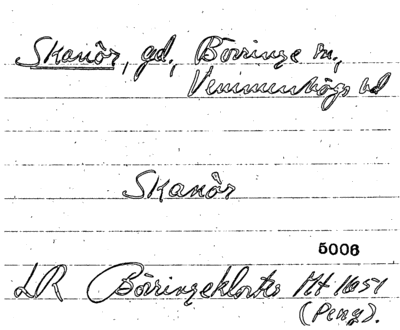 Skanör, gd, Börringe sn,
Vemmenhögs hd
Skanör
5006
LR Börringekloster Ht 1651
(Peng).